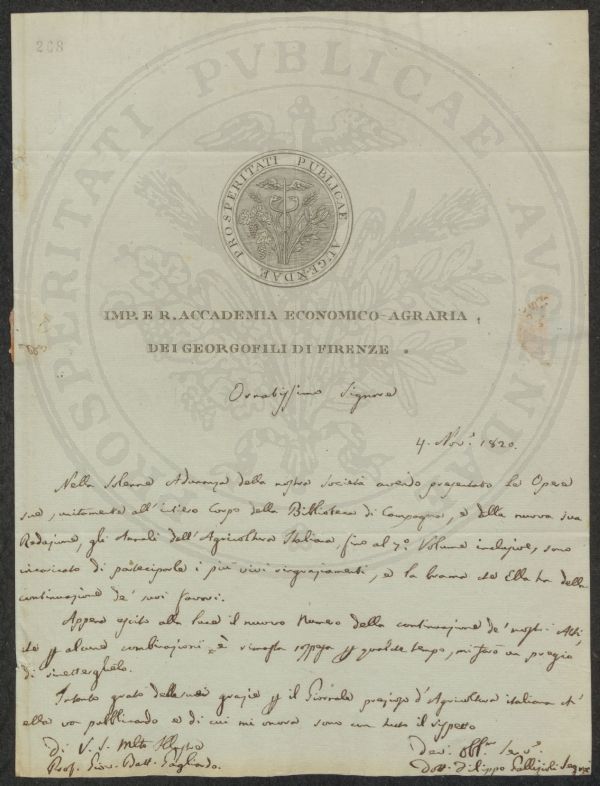 268
PROSPERITATI PUBLICAE AUGENDAE
IMP. E R. ACCADEMIA ECONOMICO-AGRARIA
DEI GEORGOFILI DI FIRENZE.
Ornatissimo Signore
4. Nov.e 1820.
Nella Solenne Adunanza della nostra Società avendo presentato le Opere
sue, unitamente all'intiero Corpo della Biblioteca di Campagna, e della nuova sua
Redazione, gli Annali dell'Agricoltura Italiana, fino al 7.o Volume inclusive, sono
incaricato di parteciparle i più vivi ringraziamenti, e la brama che Ella ha della
continuazione de' suoi favori.
Appena escito alla luce il nuovo Numero della continuazione de' nostri Atti,
che p alcune combinazioni è rimasta sospesa p qualche tempo, mi farò un pregio
di rimetterglielo.
Intanto grato delle sue grazie p il Giornale prezioso d'Agricoltura italiana ch'
ella va pubblicando e di cui mi onora sono con tutto il rispetto
Di V. S. Mlto Illustre
Prof. Giov. Batt. Gagliardo.
Dev. Obb.mo Serv.e
Dott. Filippo Gallizioli Segr.
PROSPERITATI PVBLICAE AVGENDAE